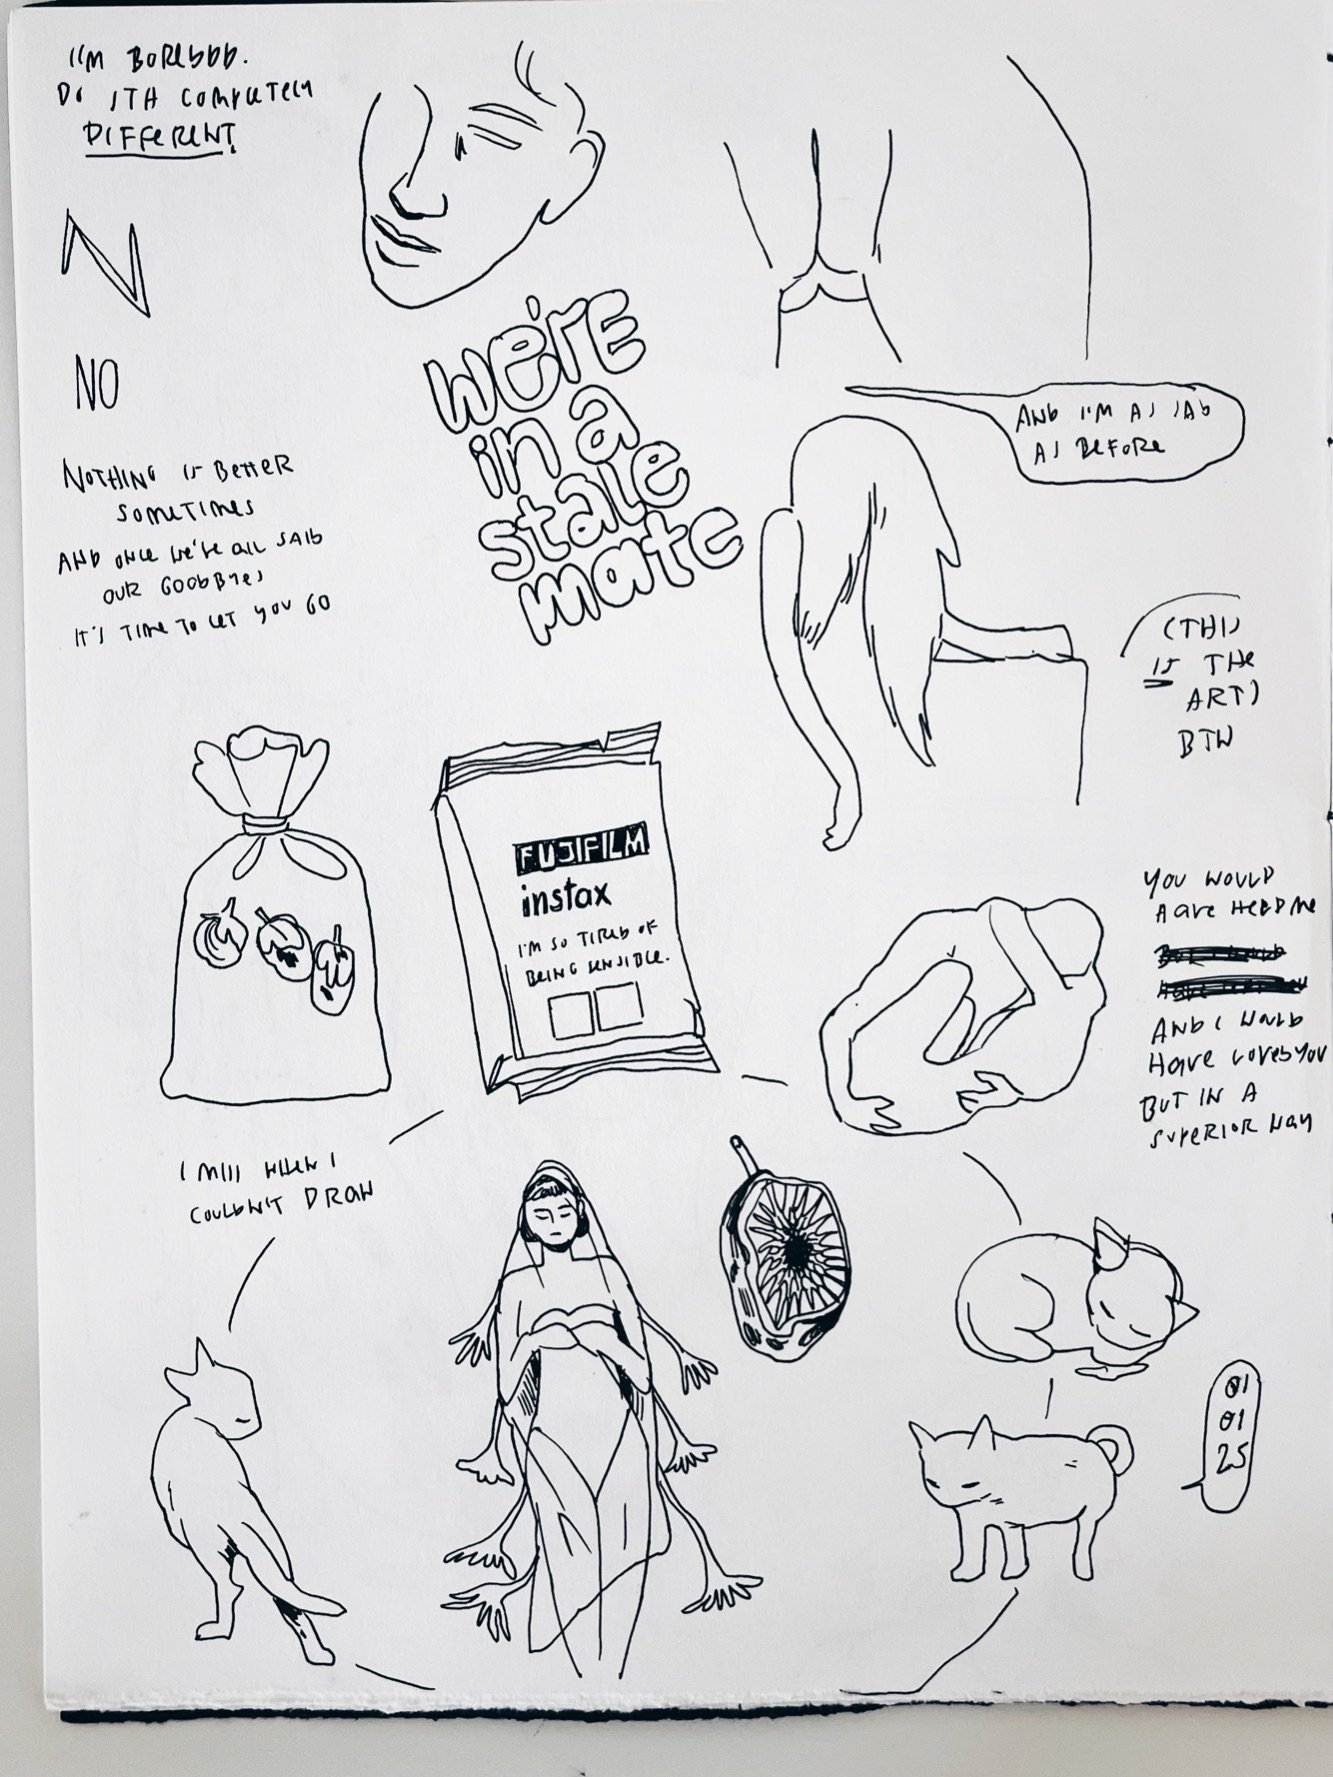 I'M BOREDDD.
DO STH COMPLETELY
DIFFERENT.
N
NO
NOTHING IS BETTER
SOMETIMES
AND ONCE WE'VE ALL SAID
OUR GOODBYES
IT'S TIME TO LET YOU GO
WE'RE
in a
stale
mate
AND I'M AS SAD
AS BEFORE
(THIS
IS THE
ART)
BTW
FUJIFILM
instax
I'M SO TIRED OF
BEING SENSIBLE.
YOU WOULD
HAVE ME
AND I WOULD
HAVE LOVED YOU
BUT IN A
SUPERIOR WAY
I MISS WHEN I
COULDN'T DRAW
01
01
25